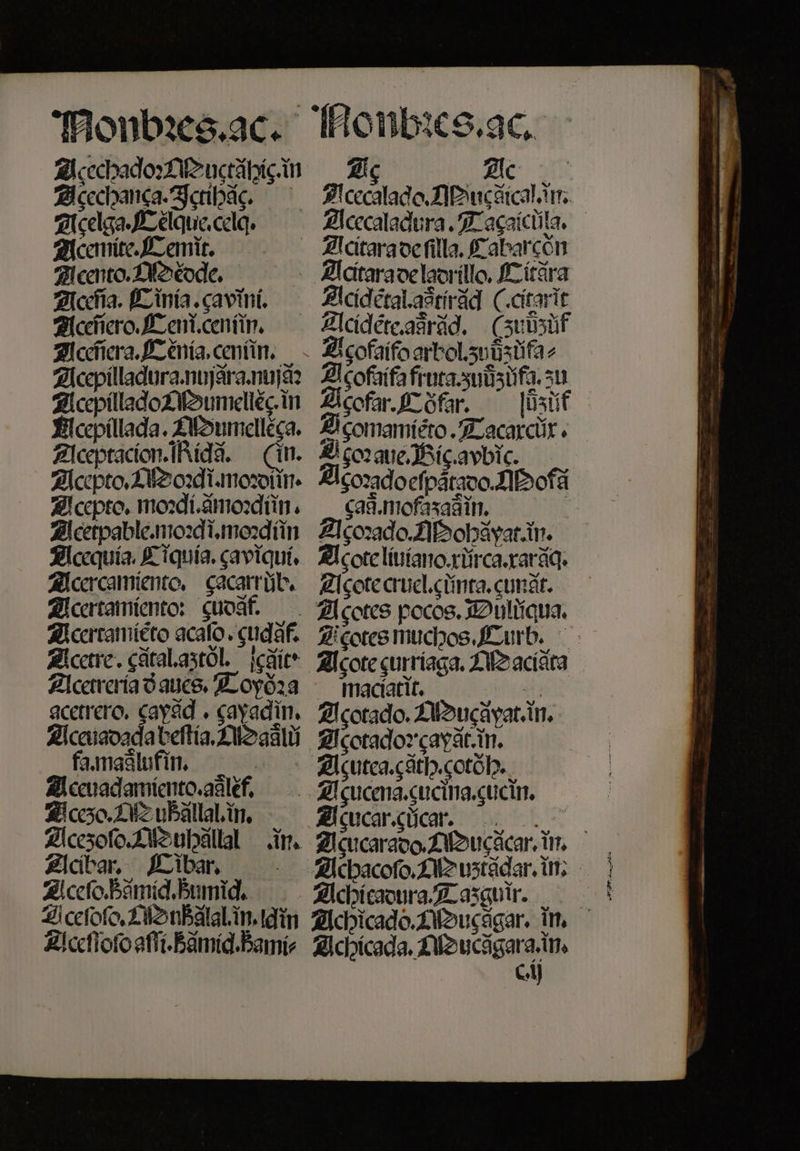 Nonbres.ac.
Acechador. Muctâhiç.in
Acechança. Yctihâç.
Acelga. Célque.celq.
Acemite. Cemit.
Acento. Méode.
Acefia. Cinía.çaviní.
Aceñero. Cení.ceniín.
Aceñera. Cénía.ceniín.
Acepilladura.nujára.nujâr
Acepillador. Mumelléç.in
Acepillada. Mumelléça.
Aceptacion. Rídâ. (in.
Accepto. Mordi.morotiín.
Accepto. mordí.âmordiín.
Acetpable.mordi.mordiín
Acequía. Ciquía. çaviquí.
Acercamiento. çacarrûb.
Acertamiento: çuoâf.
Acertamiéto acaso. çudâf.
Acetre. çâtal.astôl. içâit
Acetrería d aues. Toyôra
acetrero. çayâd. çayadin.
Aceuadada bestia. Maâlû
fa.maâlufin.
Aceuadamiento.aâléf.
Acezo. Muhâllal.in.
Acezoso. Muhâllal .in.
Acibar. Cibar.
Acesso.hâmid.humid.
Acesoso. Muhâlal.in.idin
Acessoso assi.hâmíd.hami
Nonbres.ac.
Aç Ac
Acecalado. Muçâical.in.
Acecaladura. Taçaicûla.
Acitara de silla. Cabarçôn
Acitara de ladrillo. Citâra
Acidétal.aâtirâd (.citarit
Acidéte.aârâd. (zuûzûf
Açofaifo arbol.zuûzûfa
Açofaifa fruta.zuûzûfa. zu
Açofar. Côfar. [ûzûf
Açomamiéto. Tacarcûx.
Açorque. Bíç.avbíc.
Açorado espâtado. Mofâ
çaâ.mofazaâin.
Açorado. Mobâyat.in.
Açote liuiano.xûrca.xarâq.
Açote cruel.çûnta.çunât.
Açotes pocos. Dulûqua.
Açotes muchos. Curb.
Açote çurriaga. Maciâta
maciatit.
Açotado. Muçâyat.in.
Açotador çayât.in.
Açutea.çâth.çotôh.
Açucena.çucina.çucin.
Açucar.çûcar.
Açucarado. Muçâcar. in.
Achacoso. Muztâdar. in;
Achicadura. Tazguir.
Achicado. Muçâgar. in.
Achicada. Muçâgara.in.
c.ij